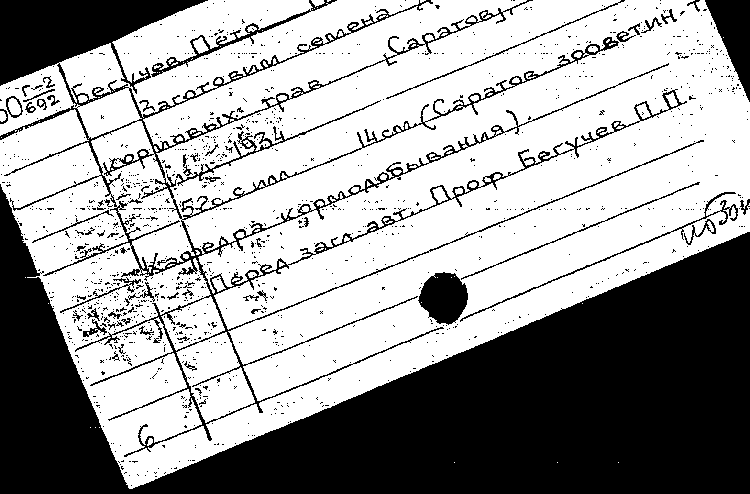 Г-2
692
Бегучев Пётр
Заготовим семена
кормовых трав. [Саратов],
изд. 1934
52 с. с илл. 14 см. (Саратов. зооветин-т.
Кафедра кормодобывания).
Перед загл. авт.: Проф. Бегучев П.П.
6.